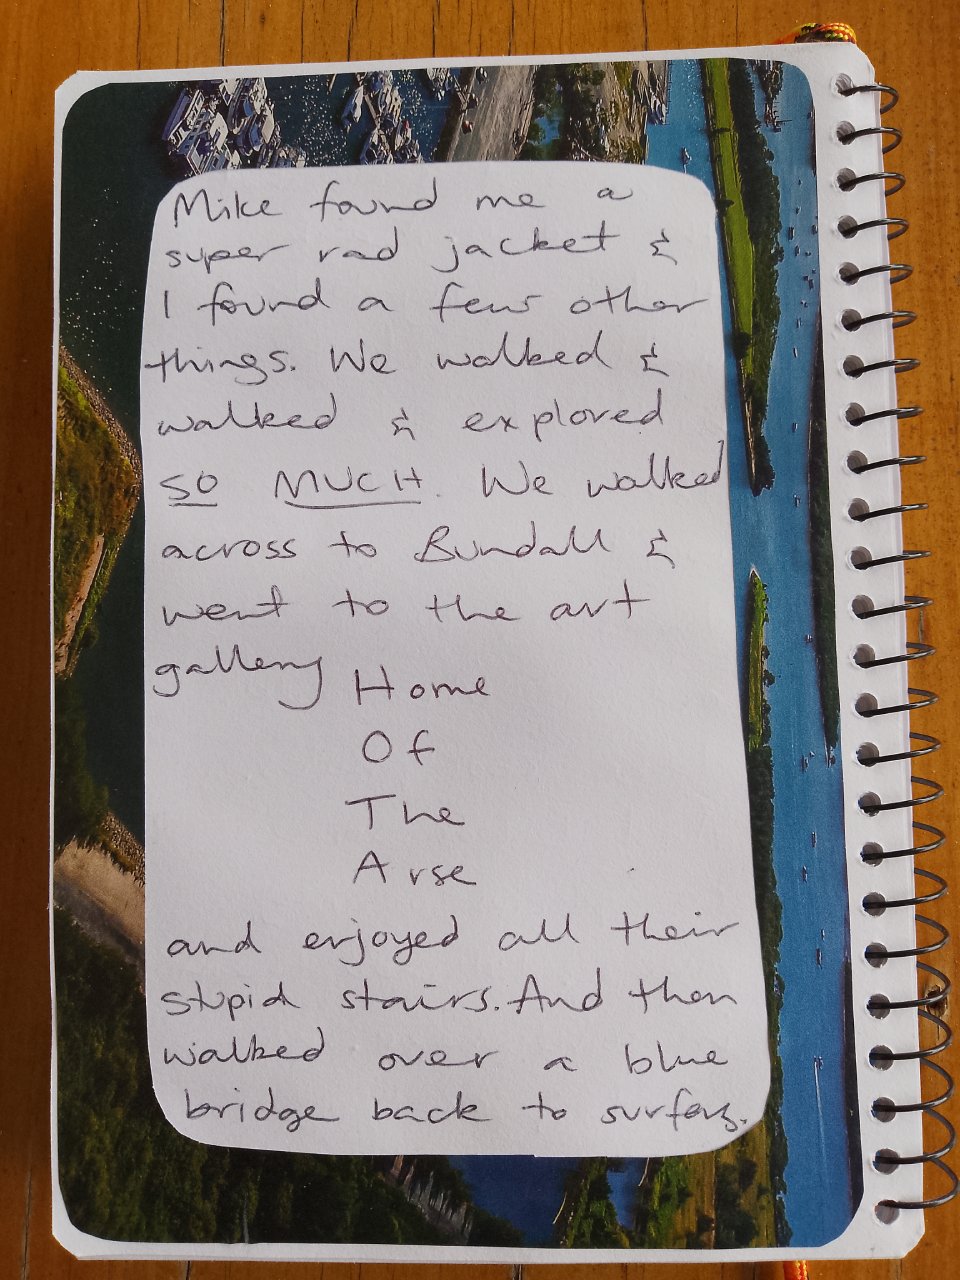 Mike found me a
super rad jacket &
I found a few other
things. We walked &
walked & explored
SO MUCH. We walked
across to Bundall &
went to the art
gallery
Home
Of
The
Arse
and enjoyed all their
stupid stairs. And then
walked over a blue
bridge back to surfers.